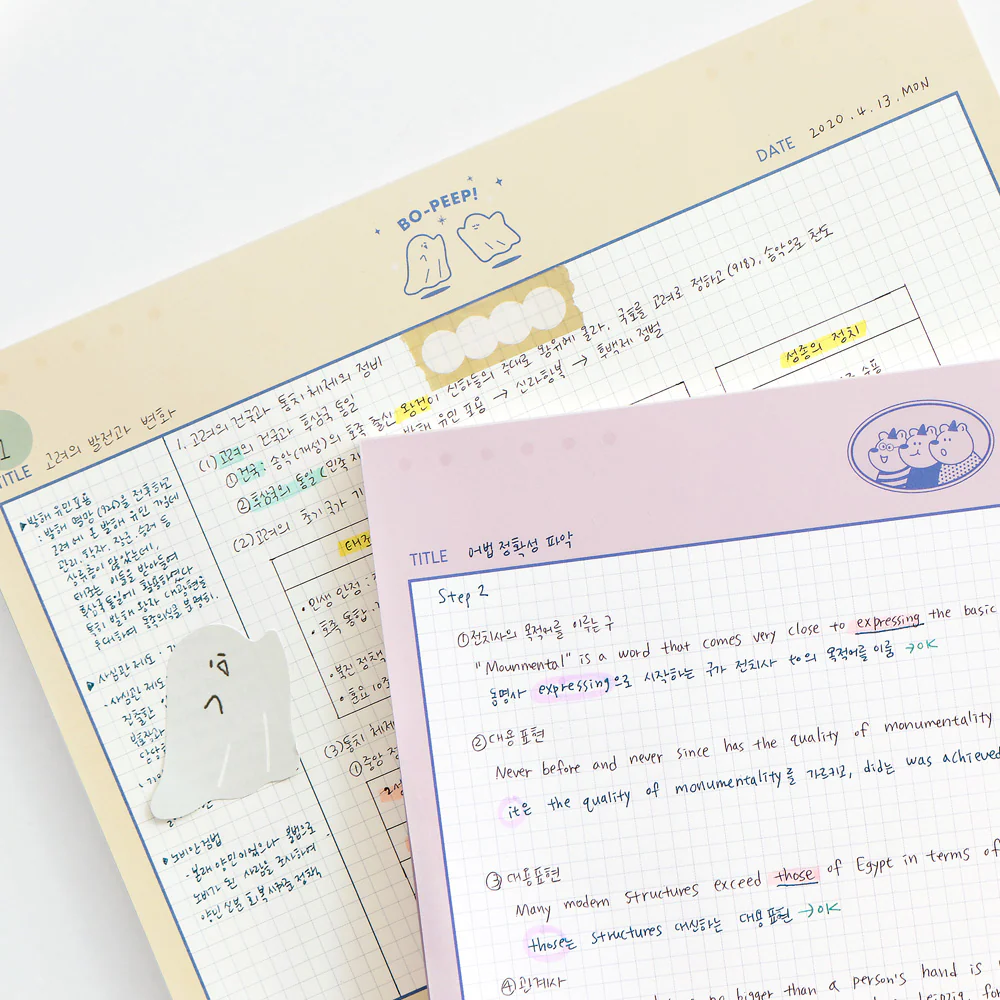 DATE 2020.4.13.MON
BO-PEEP!
1
TITLE 고려의 발전과 변화
1. 고려의 건국과 통치 체제의 정비
(1) 고려의 건국과 후삼국 통일
① 건국: 송악(개성)의 호족 출신 왕건이 신하들의 추대로 왕위에 올라, 국호를 고려로 정하고(918), 송악으로 천도
② 후삼국의 통일(민족 재
발해 유민 포용 → 신라항복 → 후백제 정벌
(2) 고려의 초기 국가 기
성종의 정치
수용
태조
• 민생 안정 :
• 호족 통합 :
• 북진 정책
• 훈요 10조
(3) 통치 체제
① 중앙 정
2성
▶ 발해 유민 포용
: 발해 멸망(926)을 전후하고
고려에 온 발해 유민 가운데
관리, 학자, 장군, 승려 등
상류층이 많았는데,
태조는 이들을 받아들여
후삼국 통일에 활용하였다
특히 발해 왕자 대광현을
우대하여 동족의식을 분명히.
▶ 사심관 제도 :
사심관 제도
진출한
▶ 노비안검법
: 본래 양민이었으나 불법으로
노비가 된 사람을 조사하여
양인 신분 회복 시켜준 정책
TITLE 어법 정확성 파악
Step 2
① 전치사의 목적어를 이루는 구
"Mounmental" is a word that comes very close to expressing the basic
동명사 expressing으로 시작하는 구가 전치사 to의 목적어를 이룸 → OK
② 대용표현
Never before and never since has the quality of monumentality
it은 the quality of monumentality를 가르키고, did는 was achieved
③ 대용표현
Many modern structures exceed those of Egypt in terms of
those는 structures 대신하는 대용표현 → OK
④ 관계사
no bigger than a person's hand is
Leipzig, for